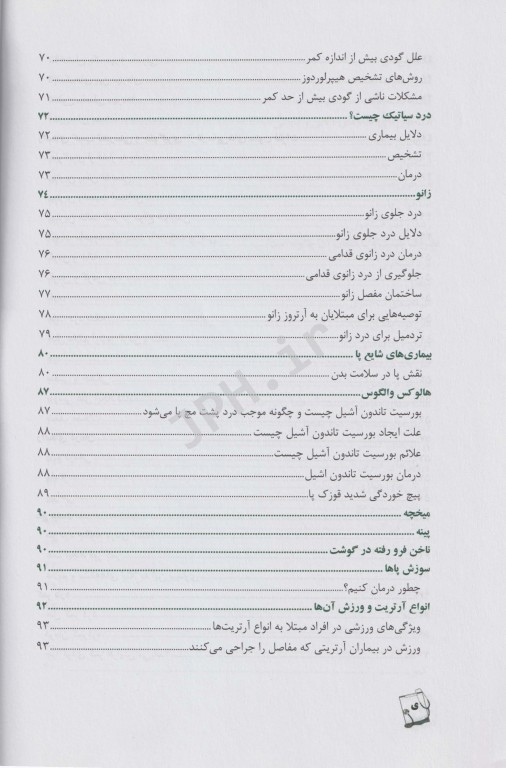 علل گودی بیش از اندازه کمر ۷۰
روش‌های تشخیص هیپرلوردوز ۷۰
مشکلات ناشی از گودی بیش از حد کمر ۷۱
درد سیاتیک چیست؟ ۷۲
دلایل بیماری ۷۲
تشخیص ۷۳
درمان ۷۳
زانو ۷۴
درد جلوی زانو ۷۵
دلایل درد جلوی زانو ۷۵
درمان درد زانوی قدامی ۷۶
جلوگیری از درد زانوی قدامی ۷۶
ساختمان مفصل زانو ۷۷
توصیه‌هایی برای مبتلایان به آرتروز زانو ۷۸
تردمیل برای درد زانو ۷۹
بیماری‌های شایع پا ۸۰
نقش پا در سلامت بدن ۸۰
هالوکس والگوس ۸۷
بورسیت تاندون آشیل چیست و چگونه موجب درد پشت مچ پا می‌شود ۸۷
علت ایجاد بورسیت تاندون آشیل چیست ۸۸
علائم بورسیت تاندون آشیل چیست ۸۸
درمان بورسیت تاندون اشیل ۸۸
پیچ خوردگی شدید قوزک پا ۸۹
میخچه ۹۰
پینه ۹۰
ناخن فرو رفته در گوشت ۹۰
سوزش پاها ۹۱
چطور درمان کنیم؟ ۹۱
انواع آرتریت و ورزش آن‌ها ۹۲
ویژگی‌های ورزشی در افراد مبتلا به انواع آرتریت‌ها ۹۳
ورزش در بیماران آرتریتی که مفاصل را جراحی می‌کنند ۹۳
ی
JPH.ir